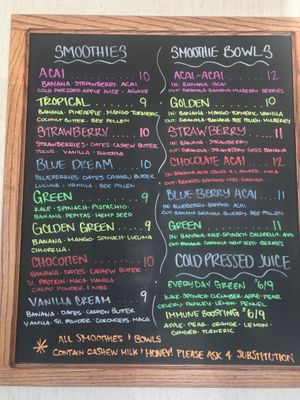 SMOOTHIES
ACAI 10
BANANA · STRAWBERRY · ACAI
COLD PRESSED APPLE JUICE · AGAVE
TROPICAL 9
BANANA · PINEAPPLE · MANGO · TURMERIC
COCONUT BUTTER · BEE POLLEN
STRAWBERRY 10
STRAWBERRIES · DATES · CASHEW BUTTER
TOCOS · VANILLA
BLUE DREAM 10
BLUEBERRIES · DATES · CASHEW BUTTER
LUCUMA · VANILLA · BEE POLLEN
GREEN 9
KALE · SPINACH · PISTACHIO
BANANA · PEPITAS · HEMP SEED
GOLDEN GREEN 9
BANANA · MANGO · SPINACH · LUCUMA
CHLORELLA
CHOCOTIEN 10
BANANA · DATES · CASHEW BUTTER
PROTEIN · MACA · VANILLA
CACAO POWDER & NIBS
VANILLA CREAM 9
BANANA · DATES · CASHEW BUTTER
VANILLA · CORDYCEPS · MACA
SMOOTHIE BOWLS
ACAI-ACAI 12
IN: BANANA · ACAI
OUT: GRANOLA · BANANA · MULBERRY · BERRIES
GOLDEN 10
IN: BANANA · MANGO · TURMERIC · VANILLA
OUT: GRANOLA · BANANA · BEE POLLEN · MULBERRY
STRAWBERRY 11
IN: BANANA · STRAWBERRY
OUT: GRANOLA · STRAWBERRY · BANANA
CHOCOLATE ACAI 12
IN: BANANA · ACAI · CACAO · MACA
OUT: BERRIES · BANANA · NIBS · GRANOLA
BLUE BERRY ACAI 11
IN: BLUEBERRY · BANANA · ACAI
OUT: BANANA · GRANOLA · BLUEBERRY · BEE POLLEN
GREEN 11
IN: BANANA · KALE · SPINACH · CHLORELLA · AVO
OUT: BANANA · GRANOLA · HEMP SEED · BERRIES
COLD PRESSED JUICE
EVERYDAY GREEN $6/9
KALE · SPINACH · CUCUMBER · APPLE · PEAR
CELERY · PARSLEY · LEMON · FENNEL
IMMUNE BOOSTING $6/9
APPLE · PEAR · ORANGE · LEMON
GINGER · TURMERIC
* ALL SMOOTHIES & BOWLS
CONTAIN CASHEW MILK & HONEY! PLEASE ASK 4 SUBSTITUTION